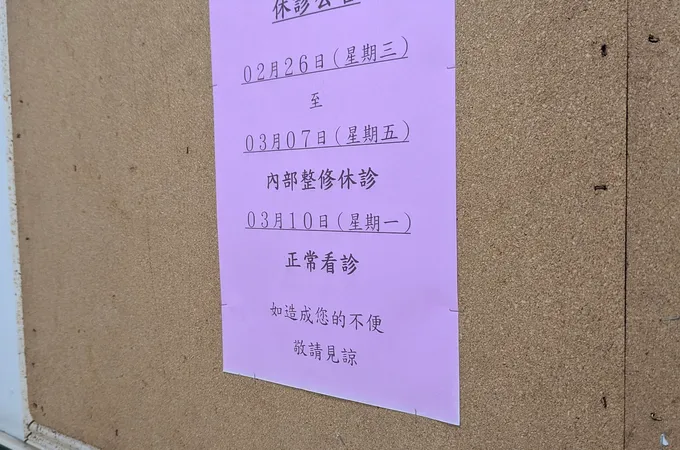 休診公告
02月26日(星期三)
至
03月07日(星期五)
內部整修休診
03月10日(星期一)
正常看診
如造成您的不便
敬請見諒